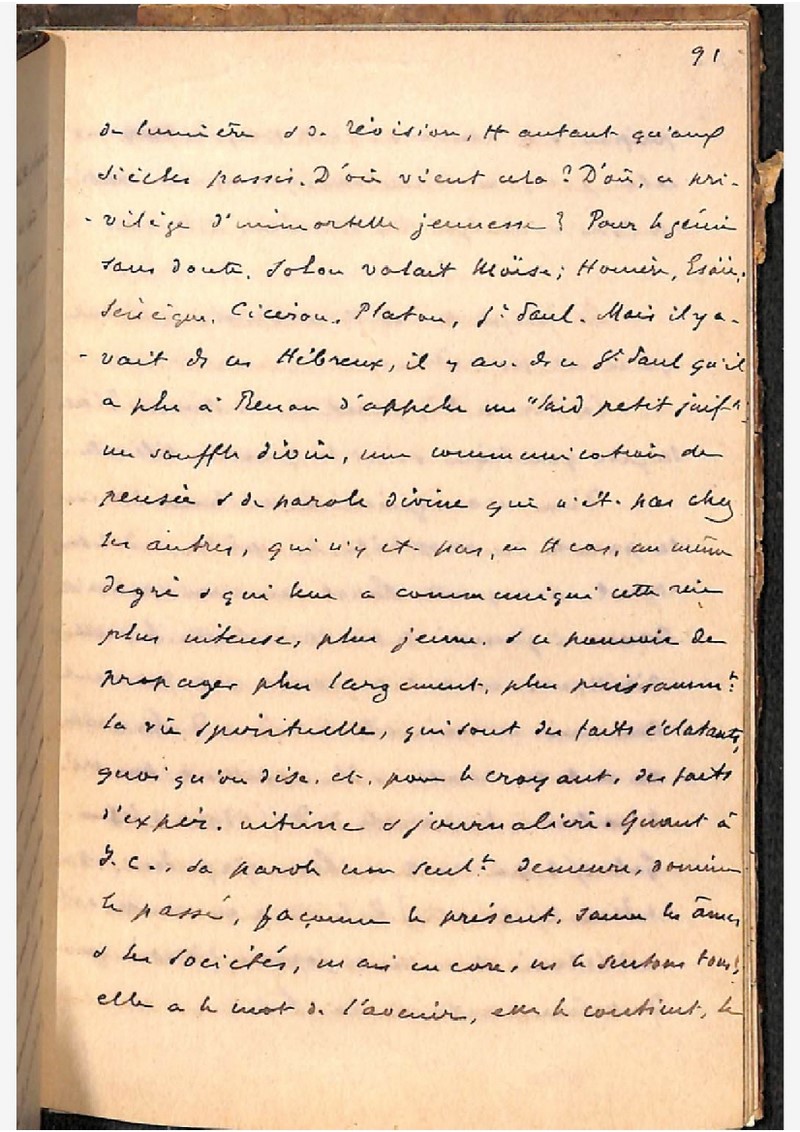 91
de lumière & de révision, tt autant qu'aux
siècles passés. D'où vient cela? D'où, ce pri-
-vilège d'immortelle jeunesse? Pour le génie
sans doute, Solon valait Moïse; Homère, Esaïe;
Sénèque, Cicéron, Platon, St Paul. Mais il y a-
-vait ds ces Hébreux, il y av. ds ce St Paul qu'il
a plu à Renan d'appeler un "laid petit juif"
un souffle divin, une communication de
pensée & de parole divine qui n'ét. pas chez
les autres, qui n'y ét. pas, en tt cas, au même
degré & qui leur a communiqué cette vie
plus intense, plus jeune, & ce pouvoir de
propager plus largement, plus puissammt
la vie spirituelle, qui sont des faits éclatants,
quoi qu'on dise, et, pour le croyant, des faits
d'expér. intime & journalière. Quant à
J. C., sa parole non seult demeure, domine
le passé, façonne le présent, sauve les âmes
& les sociétés, mais encore, ns le sentons tous,
elle a le mot de l'avenir, elle le contient, le